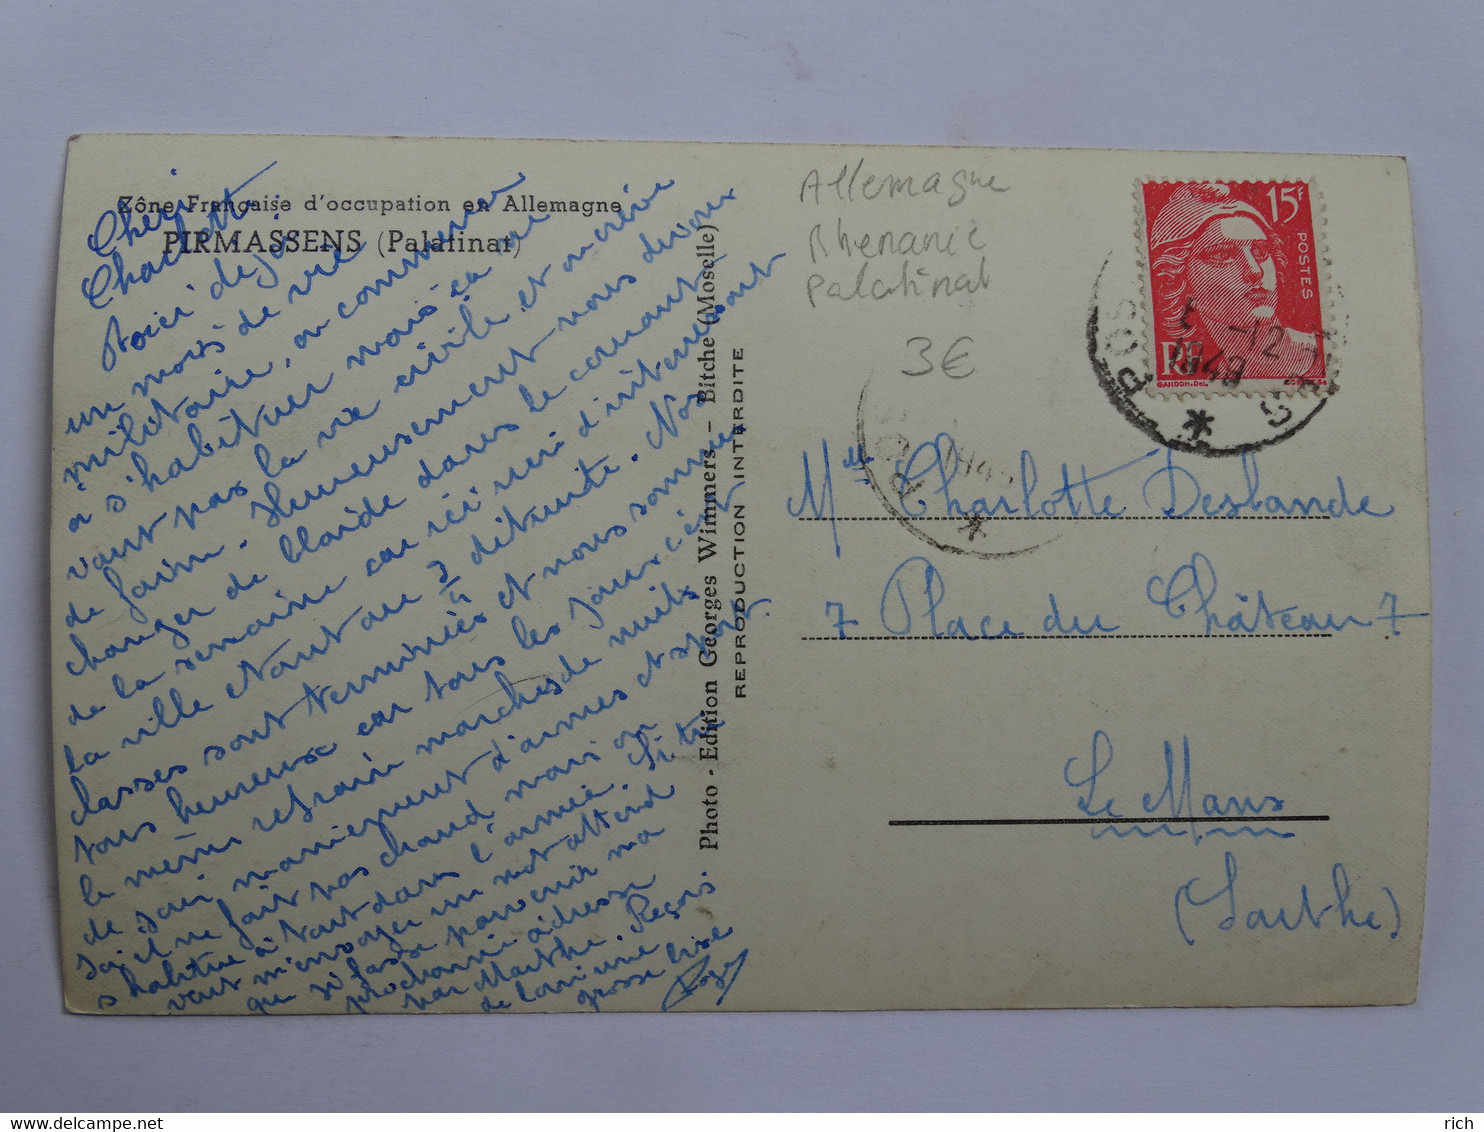 Zône Française d'occupation en Allemagne
PIRMASSENS (Palatinat)
Cherie
Charlotte
Voici déjà
un mois de vie
militaire, on commence
à s'habituer mais ça ne
vaut pas la vie civile et on crève
de faim. Heureusement nous devions
changer de bled dans le courant
de la semaine car ici rien d'interessant
la ville étant au 3/4 détruite. Nos
classes sont terminées et nous sommes
tous heureux car tous les jours c'ést
le même refrain marches de nuits
de jour maniement d'armes et sport
il ne fait pas chaud mais on
s'habitue à tout dans l'armée. Si tu
veut m'envoyer un mot attend
que je fasse parvenir ma
prochaine adresse
par Marthe. Reçois
de loin une
grosse bise
Photo - Edition Georges Wimmers - Bitche (Moselle)
REPRODUCTION INTERDITE
Allemagne
Rhenanie
Palatinat
3€
15F
POSTES
RF
GANDON.Del.
POSTES
1-12
1948
*
POS
1948
*
Mlle Charlotte Deslande
7 Place du Château 7
Le Mans
(Sarthe)
delcampe.net
rich